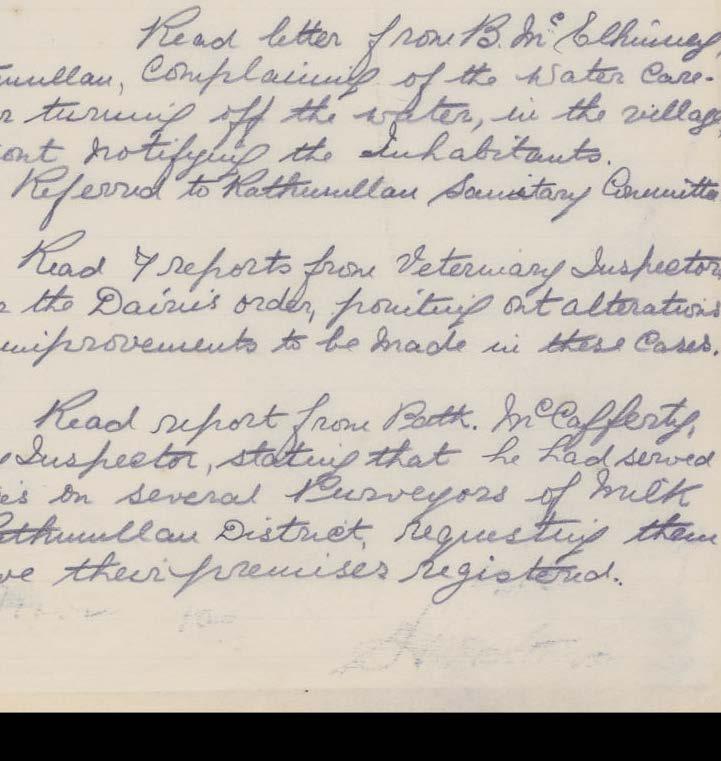 Read letter from B. McElhinney,
mullan, Complaining of the Water Care-
r turning off the water, in the village
out notifying the Inhabitants.
Referred to Rathmullan Sanitary Committe
Read 7 reports from Veterinary Inspector,
the Dairies order, pointing out alterations
improvements to be made in these Cases.
Read report from Bath. McCafferty,
Inspector, stating that he had served
es on several Purveyors of Milk
athmullan District, requesting them
ve their premises registered.